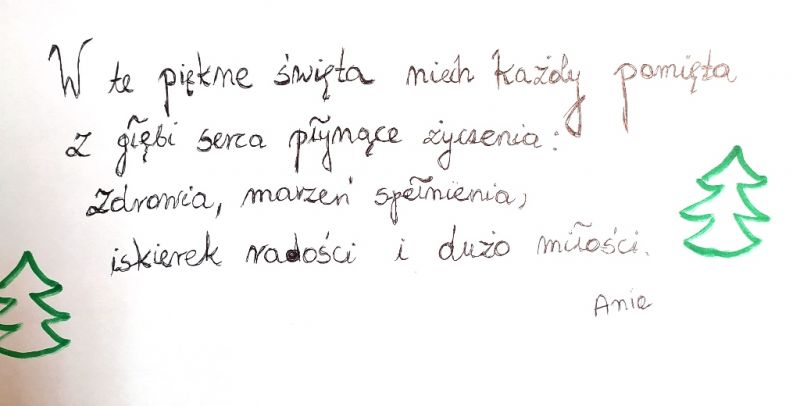 W te piękne święta niech każdy pamięta
z głębi serca płynące życzenia:
zdrowia, marzeń spełnienia,
iskierek radości i dużo miłości.
Ania